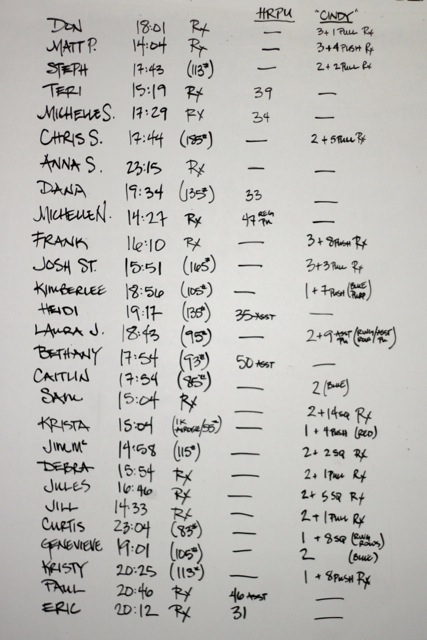 HRPU "CINDY"
DON 18:01 Rx — 3+1 PULL Rx
MATT P. 14:04 Rx — 3+4 PUSH Rx
STEPH 17:43 (113#) — 2+2 PULL Rx
TERI 15:19 Rx 39 —
MICHELLE S. 17:29 Rx 34 —
CHRIS S. 17:44 (185#) — 2+5 PULL Rx
ANNA S. 23:15 Rx — —
DANA 19:34 (135#) 33 —
MICHELLE N. 14:27 Rx 47 REG PU —
FRANK 16:10 Rx — 3+8 PUSH Rx
JOSH ST. 15:51 (165#) — 3+3 PULL Rx
KIMBERLEE 18:56 (105#) — 1+7 PUSH (BLUE PURP)
HEIDI 19:17 (135#) 35 ASST —
LAURA J. 18:43 (95#) — 2+9 ASST PU (RING ROW/ASST PU)
BETHANY 17:54 (93#) 50 ASST —
CAITLIN 17:54 (85#) — 2 (BLUE)
SAM 15:04 Rx — 2+14 SQ Rx
KRISTA 15:04 (1K /55#) — 1+4 PUSH (RED)
JIM Mc 14:58 (115#) — 2+2 SQ Rx
DEBRA 15:54 Rx — 2+1 PULL Rx
JULES 16:46 Rx — 2+5 SQ Rx
JILL 14:33 Rx — 2+1 PULL Rx
CURTIS 23:04 (83#) — 1+8 SQ (RING ROWS)
GENEVIEVE 19:01 (105#) — 2 (BLUE)
KRISTY 20:25 (113#) — 1+8 PUSH Rx
PAUL 20:46 Rx 46 ASST —
ERIC 20:12 Rx 31 —